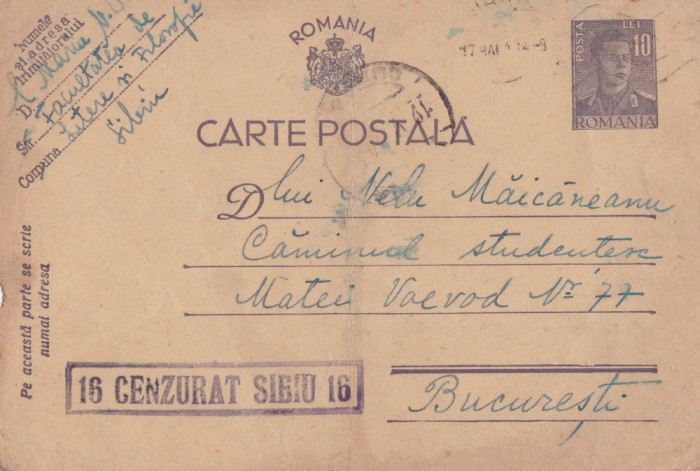 Numele
și adresa
trimițătorului
D Maria
Str. Facultatea de
Litere și Filosofie
Comuna Sibiu
ROMANIA
POSTA LEI
10
ROMANIA
CARTE POSTALA
Dlui Nelu Măicăneanu
Căminul studentesc
Matei Voevod Nr 77
București
Pe această parte se scrie
numai adresa
16 CENZURAT SIBIU 16